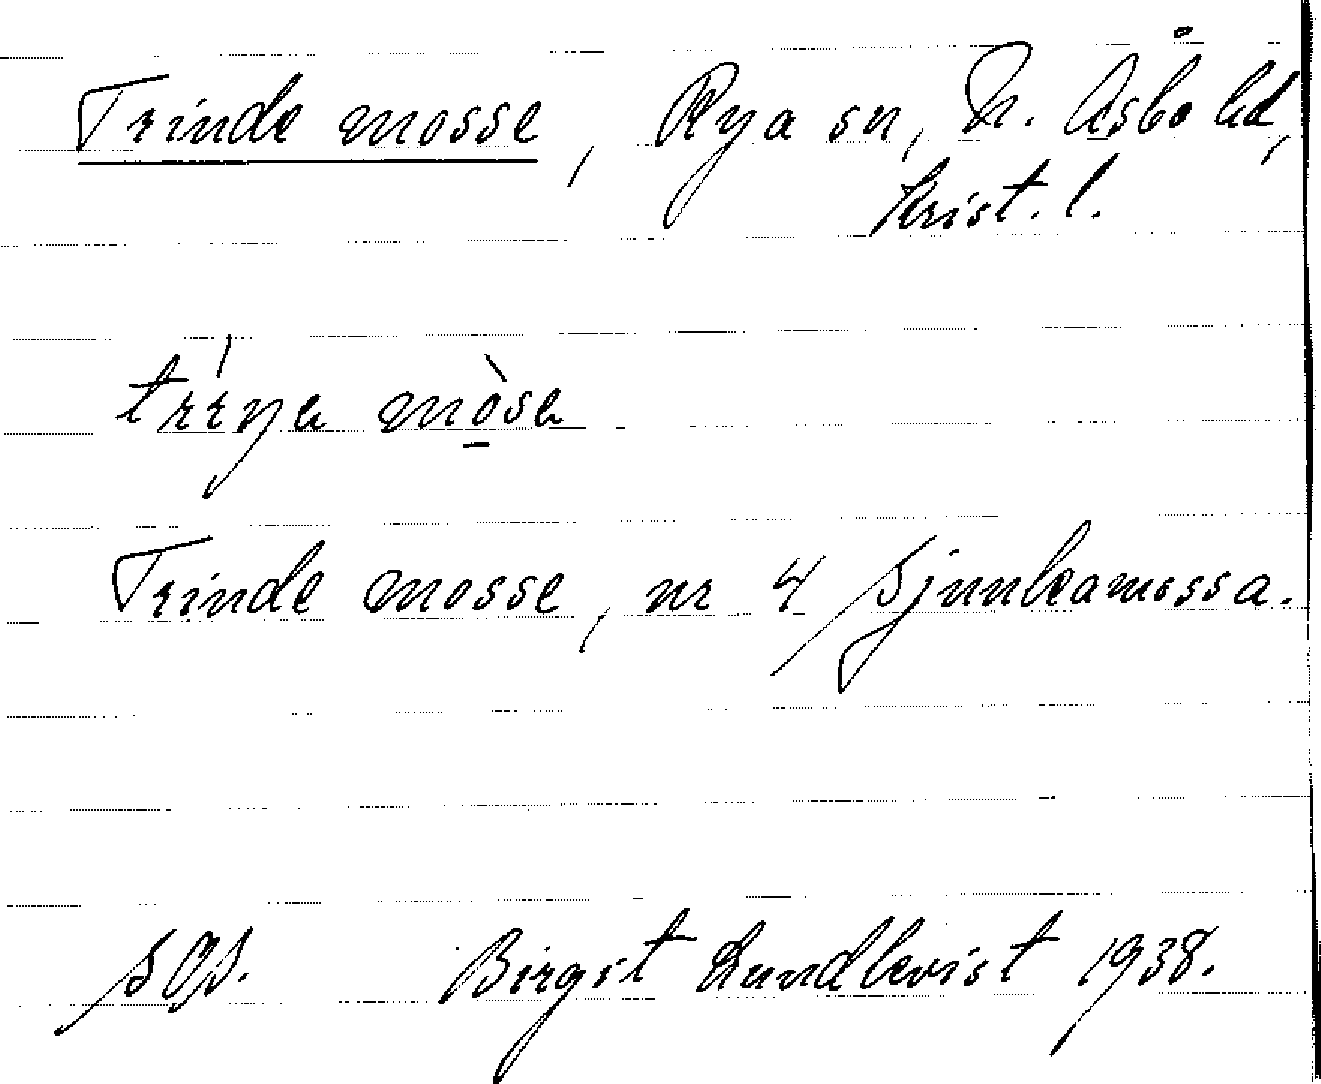 Trinde mosse, Rya sn, N. Åsbo hd,
Krist. l.
trıŋa mòsa
Trinde mosse, nr 4 Sjunkamossa.
SOS. Birgit Lundkvist 1938.